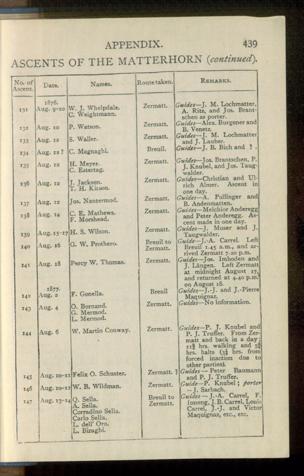 APPENDIX. 439
ASCENTS OF THE MATTERHORN (continued).
No. of Ascent. Date. Names. Route taken. REMARKS.
1876.
131 Aug. 9-10 W. J. Whelpdale. Zermatt. Guides—J. M. Lochmatter,
C. Weightmann. A. Ritz, and Jos. Brant-
schen as porter.
132 Aug. 10 P. Watson. Zermatt. Guides—Alex. Burgener and
B. Venetz.
133 Aug. 10 S. Waller. Zermatt. Guides—J. M. Lochmatter
and J. Lauber.
134 Aug. 10 ? C. Magnaghi. Breuil. Guides—J. B. Bich and ?
135 Aug. 10 H. Meyer. Zermatt. Guides—Jos. Brantschen, P.
C. Estertag. J. Knubel, and Jos. Taug-
walder.
136 Aug. 12 J. Jackson. Zermatt. Guides—Christian and Ul-
T. H. Kitson. rich Almer. Ascent in
one day.
137 Aug. 12 Jos. Nantermod. Zermatt. Guides—A. Pollinger and
B. Andermatten.
138 Aug. 14 C. E. Mathews. Zermatt. Guides—Melchior Anderegg
F. Morshead. and Peter Anderegg. As-
cent made in one day.
139 Aug. 15-17 H. S. Wilson. Zermatt. Guides—J. Moser and J.
Taugwalder.
140 Aug. 16 G. W. Prothero. Breuil to Guide—J.-A. Carrel. Left
Zermatt. Breuil 1.45 a.m., and ar-
rived Zermatt 7.20 p.m.
141 Aug. 18 Percy W. Thomas. Zermatt. Guides—Jos. Imboden and
J. Längen. Left Zermatt
at midnight August 17,
and returned at 4.40 p.m.
on August 18.
1877.
142 Aug. 2 F. Gonella. Breuil Guides—J.-J. and J.-Pierre
Maquignaz.
143 Aug. 4 O. Bornand. Zermatt. Guides—No information.
G. Mermod.
L. Mermod.
144 Aug. 6 W. Martin Conway. Zermatt. Guides—P. J. Knubel and
P. J. Truffer. From Zer-
matt and back in a day
hrs. walking and
hrs. halts hrs. from
forced inaction due to
other parties).
145 Aug. 10-11 Felix O. Schuster. Zermatt. Guides—Peter Baumann
and P. J. Truffer.
146 Aug. 12-13 W. B. Wildman. Zermatt. Guide—P. Knubel; porter
—J. Sarbach.
147 Aug. 13-14 Q. Sella. Breuil to Guides—J.-A. Carrel, F.
A. Sella. Zermatt. Imseng, J. B. Carrel, Louis
Corradino Sella. Carrel, J.-J. and Victor
Carlo Sella. Maquignaz, etc., etc.
L. dell' Oro.
L. Bizaghi.